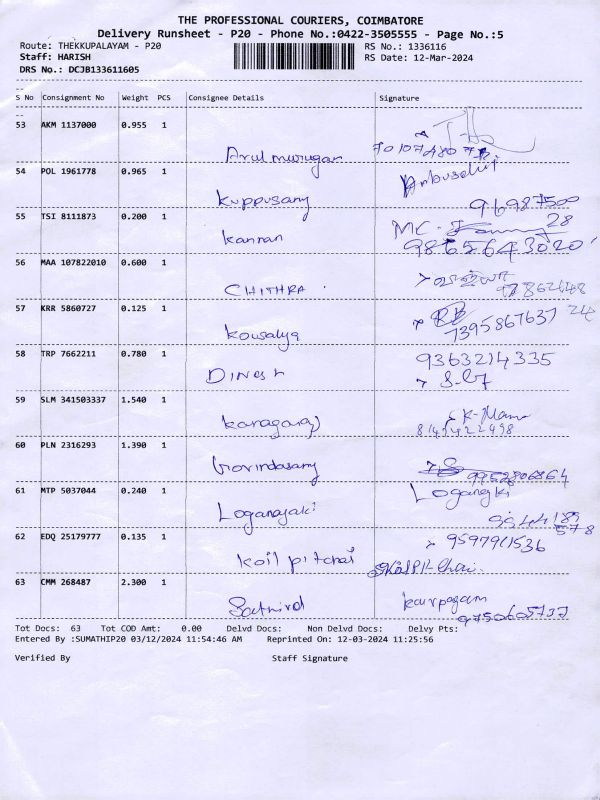 THE PROFESSIONAL COURIERS, COIMBATORE
Delivery Runsheet - P20 - Phone No.:0422-3505555 - Page No.:5
Route: THEKKUPALAYAM - P20
RS No.: 1336116
Staff: HARISH
RS Date: 12-Mar-2024
DRS No.: DCJB133611605
S No Consignment No Weight PCS Consignee Details Signature
53 AKM 1137000 0.955 1
Arul murugan
54 POL 1961778 0.965 1
Kuppusamy 96987500
28
55 TSI 8111873 0.200 1
Kannan 9865643020
56 MAA 107822010 0.600 1
CHITHRA
57 KRR 5860727 0.125 1
Kowsalya 7395867637
58 TRP 7662211 0.780 1 9363214335
Dinesh
59 SLM 341503337 1.540 1
8149422498
60 PLN 2316293 1.390 1
Govindasamy 9952806864
61 MTP 5037044 0.240 1
Loganayaki
62 EDQ 25179777 0.135 1 9597911536
Koil pitchai
63 CMM 268487 2.300 1 karpagam
9750605737
Tot Docs: 63 Tot COD Amt: 0.00 Delvd Docs: Non Delvd Docs: Delvy Pts:
Entered By :SUMATHIP20 03/12/2024 11:54:46 AM Reprinted On: 12-03-2024 11:25:56
Verified By Staff Signature